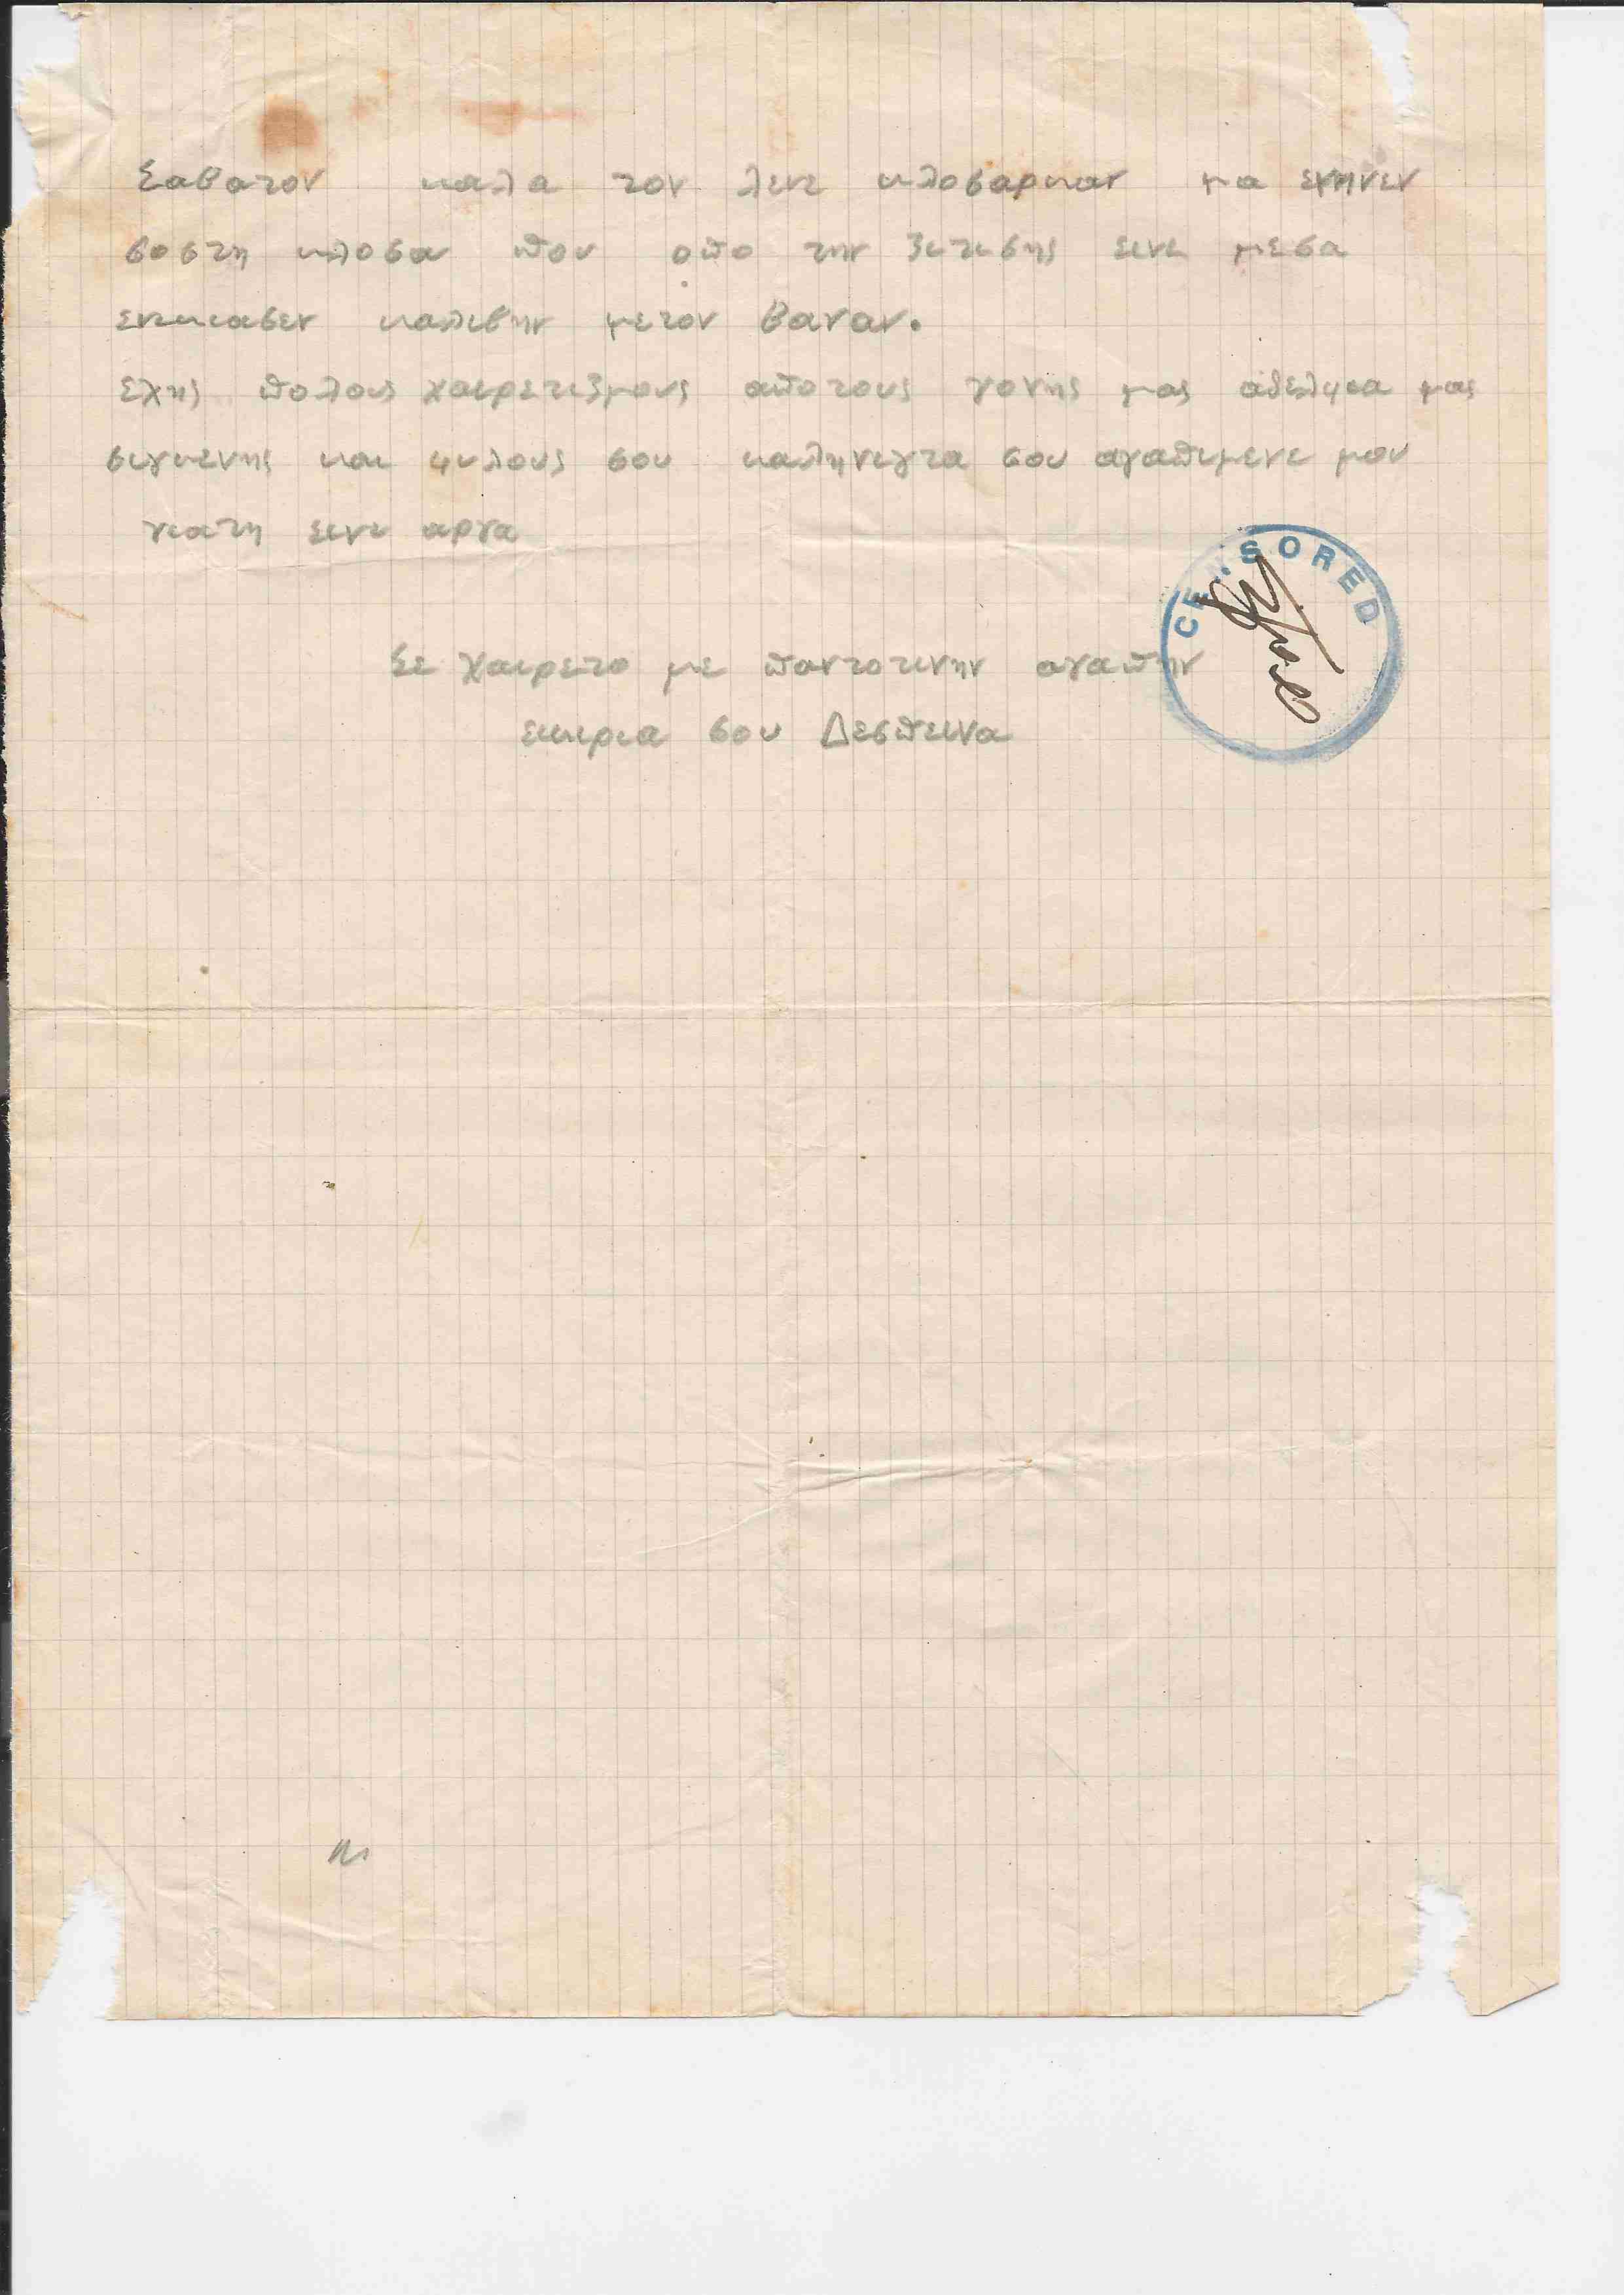 Σαβατον καλα τον λενε κλοσαρκαν μα εγηνεν
σοστη κλοσα που οπο την ζιτισης εινε μεσα
ενικιασεν καλιβην μετον βαναν.
Εχης πολους χαιρετιζμους αποτους γονης μας αδελφια μας
σιγκενης και φιλους σου καληνιχτα σου αγαπιμενε μου
γιατη εινε αργα
Σε χαιρετο με παντοτινην αγαπην
εικιρια σου Δεσπεινα
CENSORED